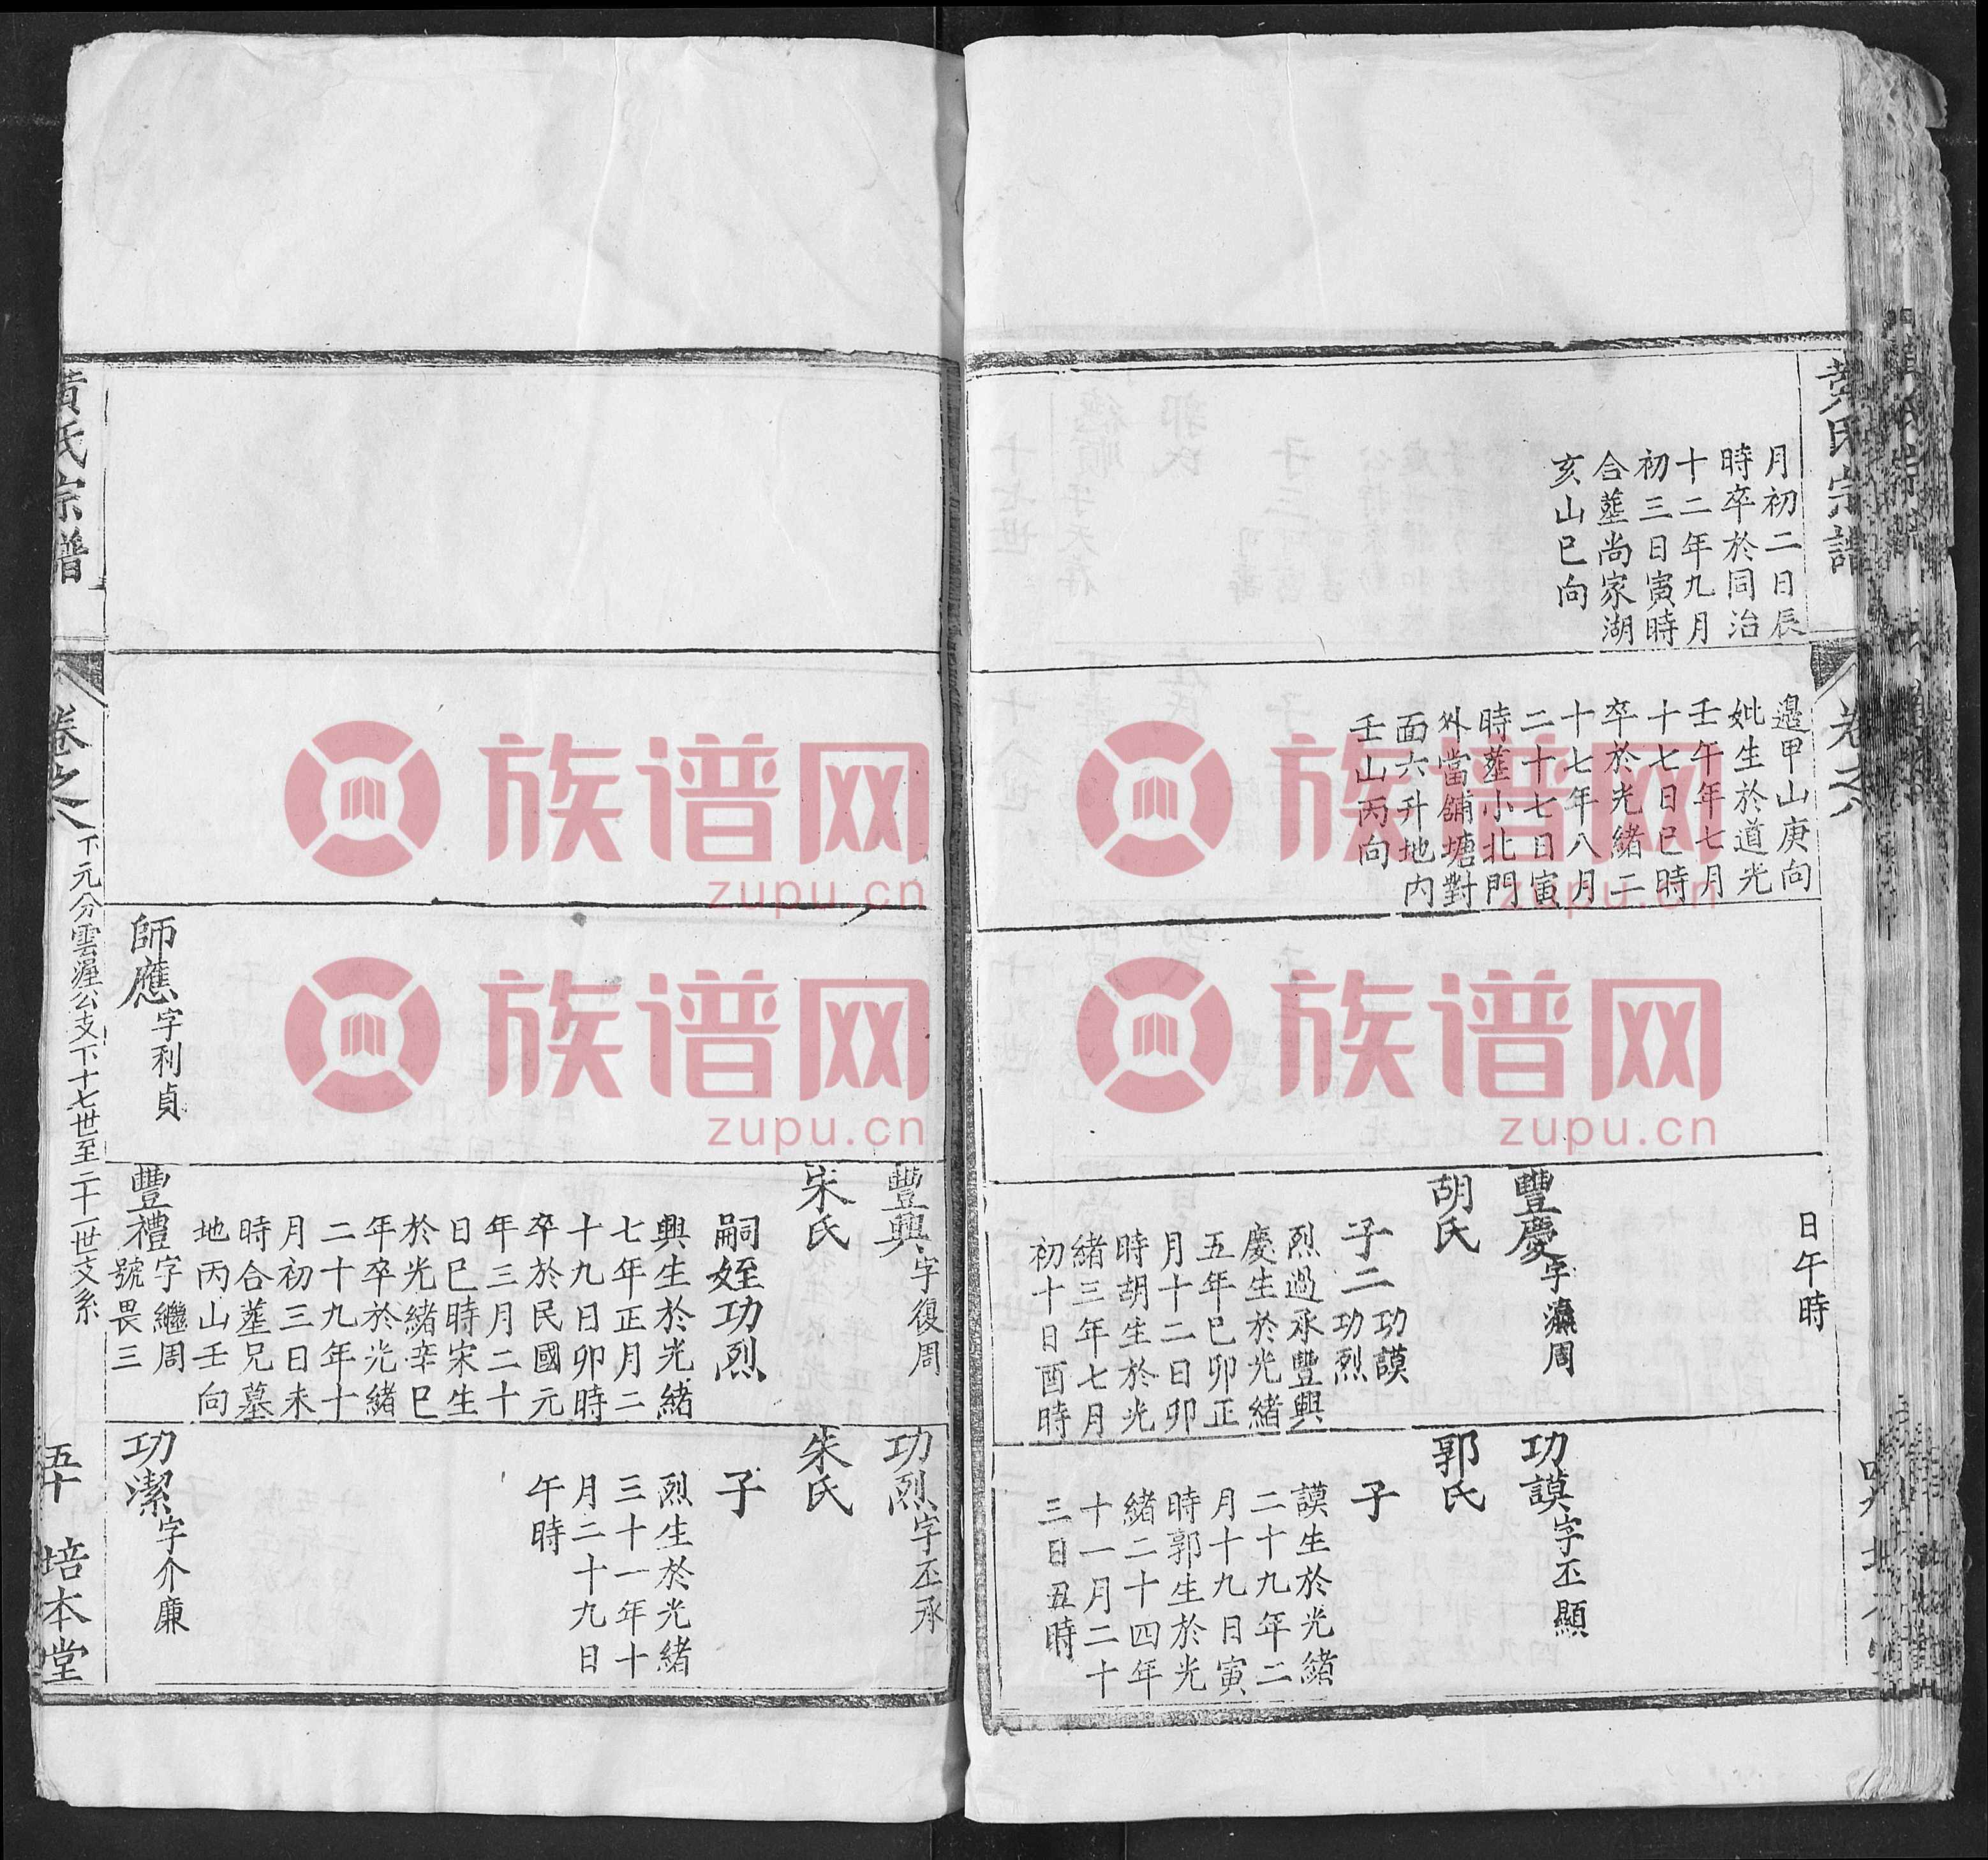 黄氏宗譜
卷之八
月初二日辰
時卒於同治
十二年九月
初三日寅時
合塟尚家湖
亥山巳向
邉甲山庚向
妣生於道光
壬午年七月
十七日巳時
卒於光緒二
十七年八月
二十七日寅
時塟小北門
外當舖塘對
面六升地内
壬山丙向
日午時
豐慶字瀛周
胡氏
子二功謨
功烈
烈過承豐興
慶生於光緒
五年巳卯正
月十二日卯
時胡生於光
緒三年七月
初十日酉時
功謨字丕顯
郭氏
子
謨生於光緒
二十九年二
月十九日寅
時郭生於光
緒二十四年
十一月二十
三日丑時
師應字利貞
豐興字復周
宋氏
嗣姪功烈
興生於光緒
七年正月二
十九日卯時
卒於民國元
年三月二十
日巳時宋生
於光緒辛巳
年卒於光緒
二十九年十
月初三日未
時合塟兄墓
地丙山壬向
豐禮字繼周
號畏三
功烈字丕承
朱氏
子
烈生於光緒
三十一年十
月二十九日
午時
功潔字介廉
黄氏宗譜
卷之八
下元分雲渥公支下十七世至二十一世支系
五十
培本堂
族谱网
zupu.cn
族谱网
zupu.cn
族谱网
zupu.cn
族谱网
zupu.cn